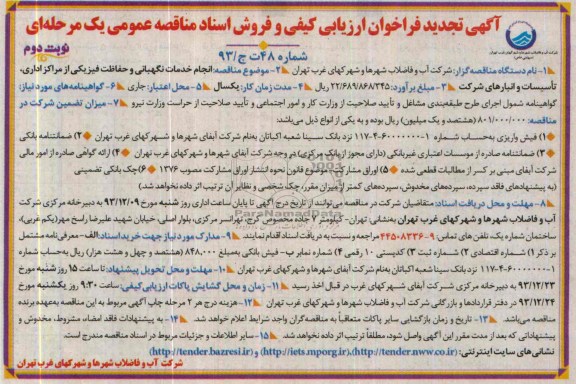 آگهی تجدید فراخوان ارزیابی کیفی و فروش اسناد مناقصه عمومی یک مرحله‌ای
شماره ۴۸ت ج/۹۳
نوبت دوم
۱- نام دستگاه مناقصه گزار: شرکت آب و فاضلاب شهرها و شهرکهای غرب تهران ۲- موضوع مناقصه: انجام خدمات نگهبانی و حفاظت فیزیکی از مراکز اداری،
تأسیسات و انبارهای شرکت ۳- مبلغ برآورد: ۲۲/۶۸۹/۸۶۸/۲۴۵ ریال ۴- مدت زمان کار: یکسال ۵- محل اعتبار: جاری ۶- گواهینامه‌های مورد نیاز:
گواهینامه شمول اجرای طرح طبقه‌بندی مشاغل و تأیید صلاحیت از وزارت کار و امور اجتماعی و تأیید صلاحیت از حراست وزارت نیرو ۷- میزان تضمین شرکت در
مناقصه: ۸۰۱/۰۰۰/۰۰۰ (هشتصد و یک میلیون) ریال بوده و به یکی از انواع ذیل می‌باشد:
۱) فیش واریزی به‌حساب شماره ۱-۶۰۰۰۰۰۰-۴-۱۱۷ نزد بانک سینا شعبه اکباتان به‌نام شرکت آبفای شهرها و شهرکهای غرب تهران ۲) ضمانتنامه بانکی
۳) ضمانتنامه صادره از موسسات اعتباری غیربانکی (دارای مجوز از بانک مرکزی) در وجه شرکت آبفای شهرها و شهرکهای غرب تهران ۴) ارائه گواهی صادره از امور مالی
شرکت آبفای مبنی بر کسر از مطالبات قطعی شده ۵) اوراق مشارکت موضوع قانون نحوه انتشار اوراق مشارکت مصوب ۱۳۷۶ ۶) چک بانکی تضمینی
(به پیشنهادهای فاقد سپرده، سپرده‌های مخدوش، سپرده‌های کمتر از میزان مقرر، چک شخصی و نظایر آن ترتیب اثر داده نخواهد شد.)
۸- مهلت و محل دریافت اسناد: متقاضیان شرکت در مناقصه می‌توانند از تاریخ درج آگهی تا پایان ساعت اداری روز شنبه مورخ ۹۳/۱۲/۰۹ به دبیرخانه مرکزی شرکت
آب و فاضلاب شهرها و شهرکهای غرب تهران به‌نشانی تهران، کیلومتر ۷ جاده مخصوص کرج، تهرانسر مرکزی، بلوار اصلی، خیابان شهید علیرضا راسخ مهر (یکم غربی)،
ساختمان شماره یک، تلفن های تماس ۹-۴۴۵۰۸۳۳۶ مراجعه و نسبت به دریافت اسناد اقدام نمایند. ۹- مدارک مورد نیاز جهت خرید اسناد: الف- معرفی‌نامه مشتمل
بر ذکر ۱) شماره اقتصادی ۲) شماره ثبت ۳) کدپستی ۱۰ رقمی ۴) شماره نمابر ب- فیش بانکی به‌مبلغ ۸۴۸,۰۰۰ (هشتصد و چهل و هشت هزار) ریال به‌حساب شماره
۱-۶۰۰۰۰۰۰-۴-۱۱۷ نزد بانک سینا شعبه اکباتان به‌نام شرکت آبفای شهرها و شهرکهای غرب تهران ۱۰- مهلت و محل تحویل پیشنهاد: تا ساعت ۱۵ روز شنبه مورخ
۹۳/۱۲/۲۳ به دبیرخانه مرکزی شرکت آبفای شهرکهای غرب در قبال اخذ رسید ۱۱- زمان و محل گشایش پاکات ارزیابی کیفی: ساعت ۹:۳۰ روز یکشنبه مورخ
۹۳/۱۲/۲۴ در دفتر قراردادها و بازرگانی شرکت آب و فاضلاب شهرها و شهرکهای غرب تهران ۱۲- هزینه درج هر ۲ مرحله چاپ آگهی مربوط به این مناقصه به‌عهده برنده
مناقصه می‌باشد. ۱۳- تاریخ و زمان بازگشایی سایر پاکات متعاقباً به مناقصه‌گران واجد شرایط اعلام خواهد شد. ۱۴- به پیشنهادات فاقد امضاء، مشروط، مخدوش و
پیشنهاداتی که بعد از مدت مقرر این آگهی واصل شود، مطلقاً ترتیب اثر داده نخواهد شد. ۱۵- سایر اطلاعات و جزئیات مربوط در اسناد مناقصه مندرج است.
نشانی های سایت اینترنتی: (http://tender.nww.co.ir)، (http://iets.mporg.ir) و (http://tender.bazresi.ir)
شرکت آب و فاضلاب شهرها و شهرکهای غرب تهران